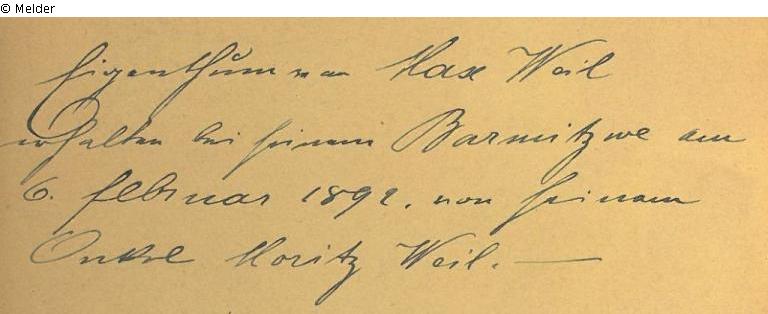 © Melder
Eigenthum von Max Weil
erhalten bei seinem Barmitzwe am
6. Februar 1892. von seinem
Onkel Moritz Weil. —